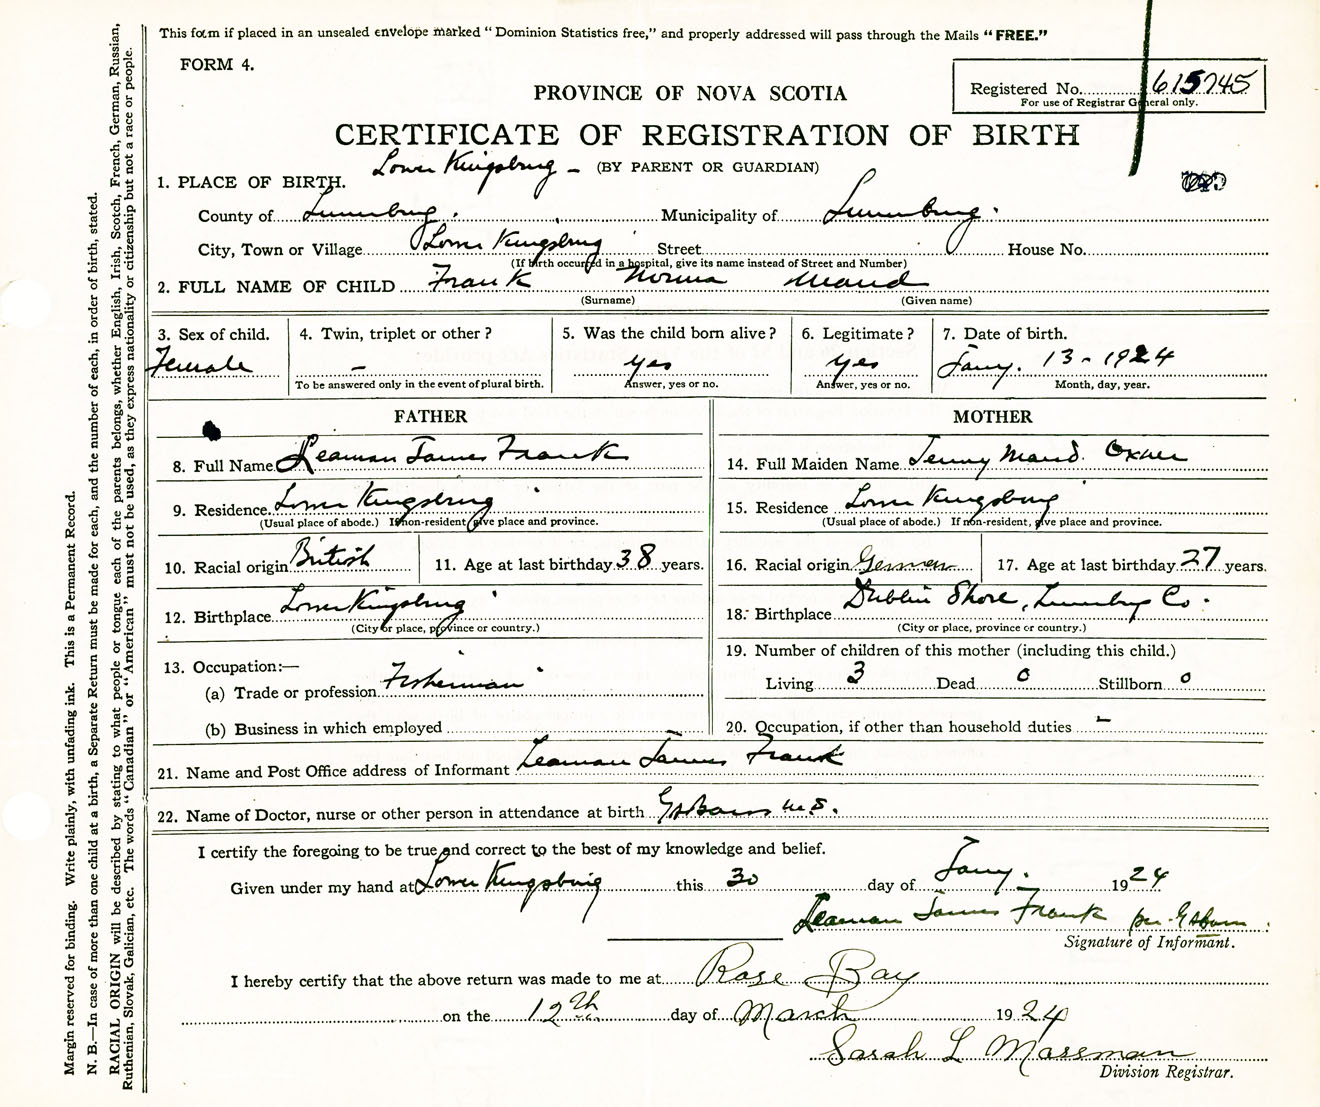 This form if placed in an unsealed envelope marked "Dominion Statistics free," and properly addressed will pass through the Mails "FREE."
FORM 4.
Registered No. 615745
For use of Registrar General only.
PROVINCE OF NOVA SCOTIA
CERTIFICATE OF REGISTRATION OF BIRTH
Lower Kingsburg – (BY PARENT OR GUARDIAN)
1. PLACE OF BIRTH.
County of Lunenburg. Municipality of Lunenburg.
City, Town or Village Lower Kingsburg Street House No.
(If birth occurred in a hospital, give its name instead of Street and Number)
2. FULL NAME OF CHILD Frank Norma Maud
(Surname) (Given name)
3. Sex of child. 4. Twin, triplet or other? 5. Was the child born alive? 6. Legitimate? 7. Date of birth.
Female – yes yes Jany. 13 - 1924
To be answered only in the event of plural birth. Answer, yes or no. Answer, yes or no. Month, day, year.
FATHER
8. Full Name Leaman James Frank
9. Residence. Lower Kingsburg
(Usual place of abode.) If non-resident, give place and province.
10. Racial origin British 11. Age at last birthday 38 years.
12. Birthplace Lower Kingsburg
(City or place, province or country.)
13. Occupation:—
(a) Trade or profession Fisherman
(b) Business in which employed
MOTHER
14. Full Maiden Name Jenny Maud Oxner
15. Residence Lower Kingsburg
(Usual place of abode.) If non-resident, give place and province.
16. Racial origin German 17. Age at last birthday 27 years.
18. Birthplace Dublin Shore, Lunenburg Co.
(City or place, province or country.)
19. Number of children of this mother (including this child.)
Living 3 Dead 0 Stillborn 0
20. Occupation, if other than household duties –
21. Name and Post Office address of Informant Leaman James Frank
22. Name of Doctor, nurse or other person in attendance at birth
I certify the foregoing to be true and correct to the best of my knowledge and belief.
Given under my hand at Lower Kingsburg this 30 day of Jany. 1924
Leaman James Frank per
Signature of Informant.
I hereby certify that the above return was made to me at Rose Bay
on the 12th day of March 1924
Sarah L Mossman
Division Registrar.
Margin reserved for binding. Write plainly, with unfading ink. This is a Permanent Record.
N. B.—In case of more than one child at a birth, a Separate Return must be made for each, and the number of each, in order of birth, stated.
RACIAL ORIGIN will be described by stating to what people or tongue each of the parents belongs, whether English, Irish, Scotch, French, German, Russian,
Ruthenian, Slovak, Galician, etc. The words "Canadian" or "American" must not be used, as they express nationality or citizenship but not a race or people.